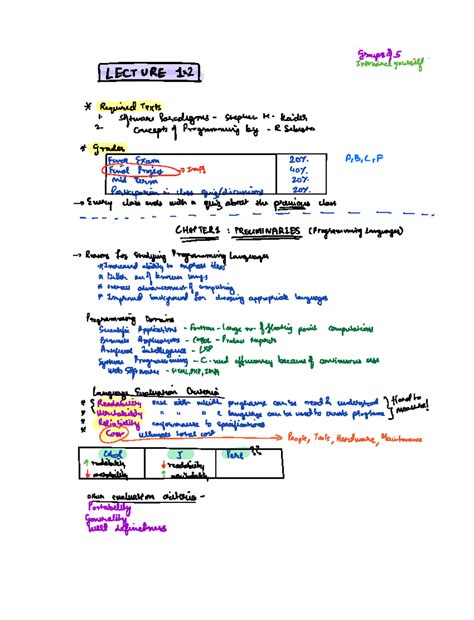 Groups of 5
Introduce yourself
LECTURE 1&2
* Required Texts
1. Software Paradigms - Stephen H. Kaisler
2. Concepts of Programming by - R Sebesta
* Grades
Final Exam 20%
Final Project → Imp! 40%
Mid Term 20%
Participation in class quiz/discussions 20%
A, B, C, F
→ Every class ends with a quiz about the previous class
CHAPTER 1 : PRELIMINARIES (Programming Languages)
→ Reasons for studying Programming Languages
* Increased ability to express ideas
* Better use of known langs
* Overall advancement of computing
* Improved background for choosing appropriate languages
Programming Domains
Scientific Applications - Fortran - Large nr of floating point computations
Business Applications - COBOL - Produce reports
Artificial Intelligence - LISP
Systems Programming - C - need efficiency because of continuous use
Web Software - HTML, PHP, JAVA
Language Evaluation Criteria
* Readability ease with which programs can be read & understood
* Writability " " " a language can be used to create programs
Hard to measure!
* Reliability conformance to specifications
* Cost ultimate total cost → People, Tools, Hardware, Maintenance
Cobol J Perl
↑ readability ↓ readability
↓ writability ↑ writability
Other evaluation criteria -
Portability
Generality
Well definedness